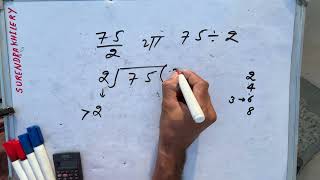 SURENDRA KHILERY
75/2 या 75 ÷ 2
2√75(
↓
>2
2
4
3→6
8